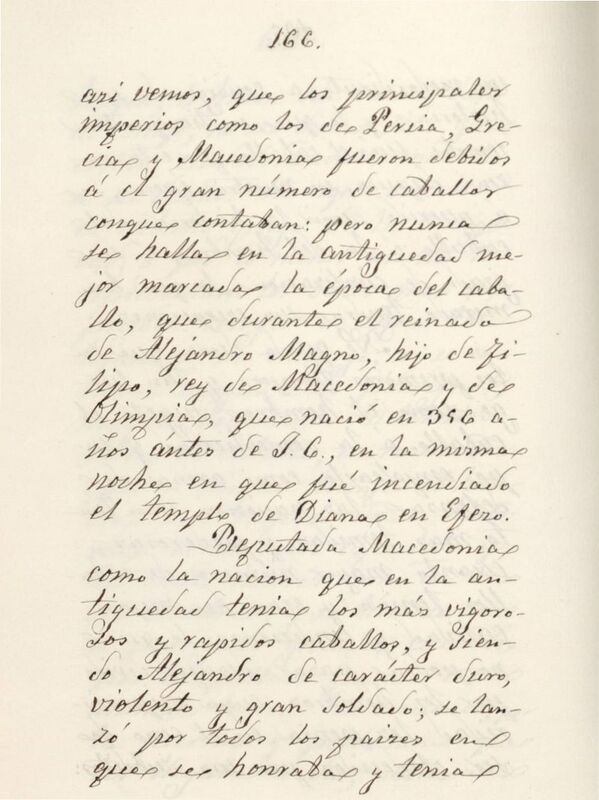 166.
asi vemos, que los principales
imperios como los de Persia, Gre-
cia y Macedonia fueron debidos
á el gran número de caballos
conque contaban: pero nunca
se halla en la antiguedad me-
jor marcada la época del caba-
llo, que durante el reinado
de Alejandro Magno, hijo de Fi-
lipo, rey de Macedonia y de
Olimpia, que nació en 356 a-
ños ántes de J. C., en la misma
noche en que fué incendiado
el templo de Diana en Efezo.
Reputada Macedonia
como la nacion que en la an-
tiguedad tenia los más vigoro-
sos y rapidos caballos, y sien-
do Alejandro de carácter duro,
violento y gran soldado; se lan-
zó por todos los paizes en
que se honraba y tenia